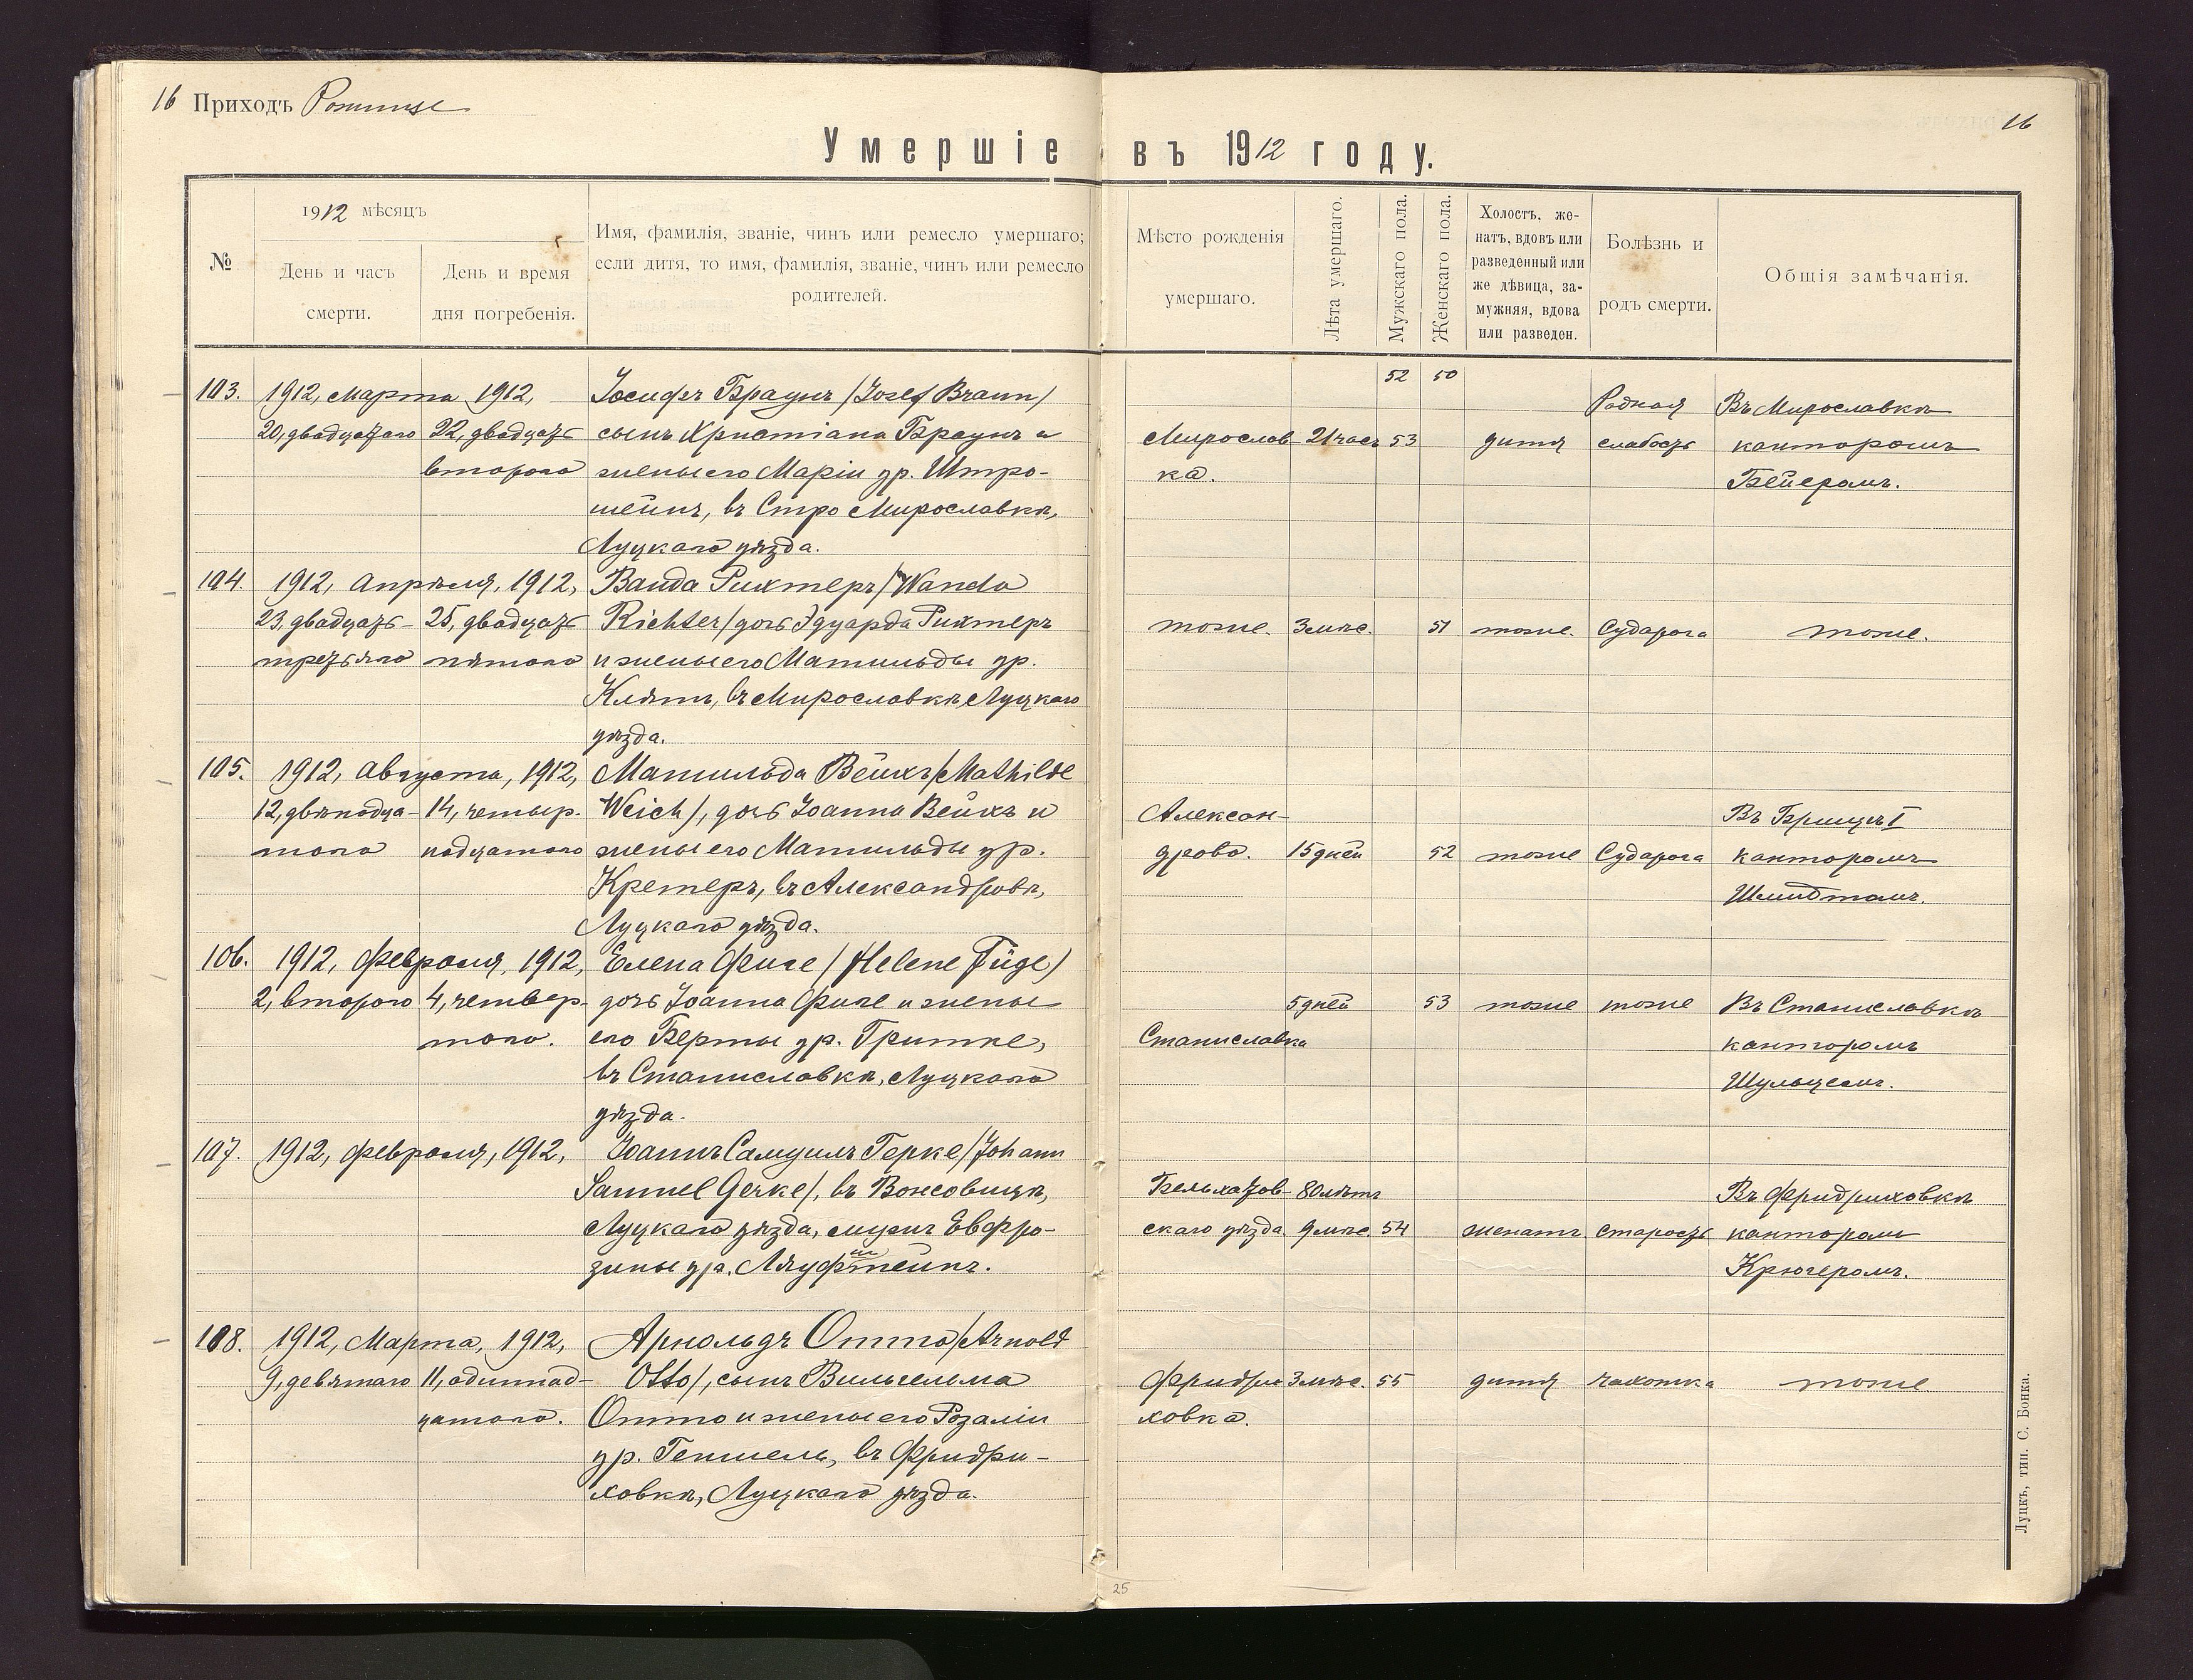 16 Приходъ Рожище
16
Умершіе въ 1912 году.
№
1912 мѣсяцъ
День и часъ смерти.
День и время дня погребенія.
Имя, фамилія, званіе, чинъ или ремесло умершаго;
если дитя, то имя, фамилія, званіе, чинъ или ремесло
родителей.
Мѣсто рожденія
умершаго.
Лѣта умершаго.
Мужскаго пола.
Женскаго пола.
Холостъ, же-
натъ, вдовъ или
разведенный или
же дѣвица, за-
мужняя, вдова
или разведен.
Болѣзнь и
родъ смерти.
Общія замѣчанія.
52 50
103. 1912, Марта 1912,
20, двадцатаго 22, двадцать
втораго
Іосифъ Браунъ /Josef Braun/
сынъ Христіана Браунъ и
жены его Маріи ур. Штро-
шейнъ, въ Стро Мирославкѣ,
Луцкаго уѣзда.
Мирослав-
ка.
21 час. 53 дитя
Родная
слабость
Въ Мирославкѣ
канторомъ
Бейеромъ.
104. 1912, Апрѣля, 1912,
23, двадцать- 25, двадцать
третьяго пятаго
Ванда Рихтеръ /Wanda
Richter/ дочь Эдуарда Рихтеръ
и жены его Матильды ур.
Клятъ, въ Мирославкѣ Луцкаго
уѣзда.
тоже. 3 мѣс. 51 тоже. Сударога тоже.
105. 1912, Августа, 1912,
12, двѣнадца- 14, четыр-
таго надцатаго
Матильда Вейхъ /Mathilde
Weich/, дочь Іоанна Вейхъ и
жены его Матильды ур.
Кретеръ, въ Александровѣ,
Луцкаго уѣзда.
Алексан-
дрово. 15 дней 52 тоже Сударога
Въ Брищѣ I
канторомъ
Шмидтомъ.
106. 1912, Февраля, 1912,
2, второго 4, четвер-
таго.
Елена Фиге /Helene Füge/
дочь Іоанна Фиге и жены
его Берты ур. Гритке,
въ Станиславкѣ, Луцкаго
уѣзда.
Станиславка
5 дней 53 тоже тоже
Въ Станиславкѣ
канторомъ
Шульцемъ.
107. 1912, Февраля, 1912,
Іоаннъ Самуилъ Герке /Johann
Samuel Gerke/, въ Вонсовицѣ,
Луцкаго уѣзда, мужъ Евфро-
зины ур.
Бельхатов-
скаго уѣзда.
80 лѣтъ
9 мѣс. 54 женатъ старость
Въ Фридриховкѣ
канторомъ
Крюгеромъ.
108. 1912, Марта, 1912,
9, девятаго 11, одиннад-
цатаго.
Арнольдъ Отто /Arnold
Otto/, сынъ Вильгельма
Отто и жены его Розаліи
ур. Геншель, въ Фридри-
ховкѣ, Луцкаго уѣзда.
Фридри-
ховка.
3 мѣс. 55 дитя чахотка тоже.
25
Луцкъ, тип. С. Бонка.